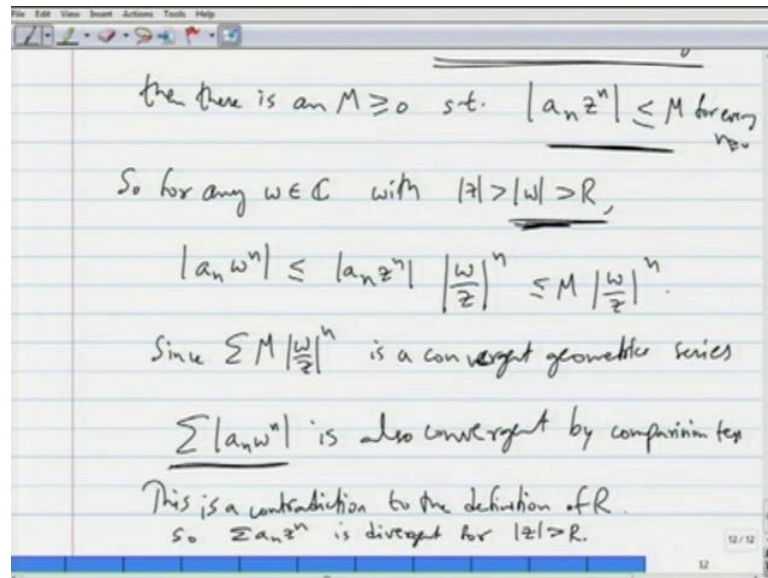 File Edit View Insert Actions Tools Help
then there is an M ≥ 0 s.t. |aₙ zⁿ| ≤ M for every
n≥0
So for any w ∈ ℂ with |z| > |w| > R,
|aₙ wⁿ| ≤ |aₙ zⁿ| |w/z|ⁿ ≤ M |w/z|ⁿ.
Since Σ M |w/z|ⁿ is a convergent geometric series
Σ |aₙ wⁿ| is also convergent by comparison test
This is a contradiction to the definition of R.
So Σ aₙ zⁿ is divergent for |z| > R.
12/12
12